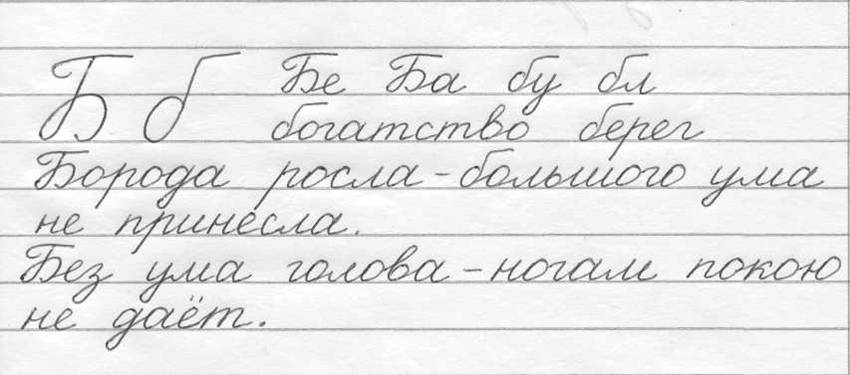 Б б Бе Ба бу бл
богатство берег
Борода росла - большого ума
не принесла.
Без ума голова - ногам покою
не даёт.